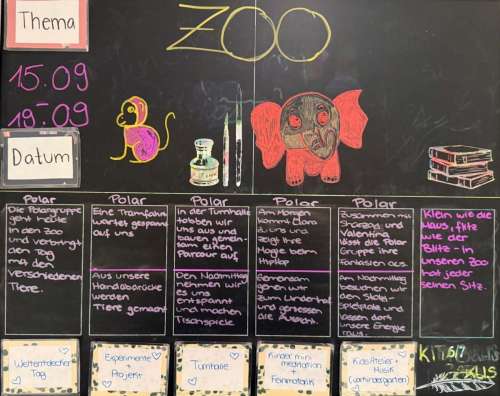 Thema
ZOO
15.09
19.09
Datum
Polar
Die Polargruppe
geht heute
in den Zoo
und verbringt
den Tag
mit den
verschiedenen
Tiere.
Polar
Eine Tramfahrt
wartet gespannt
auf uns
Aus unsere
Handabdrücke
werden
Tiere gemacht
Polar
In der Turnhalle
toben wir
uns aus und
bauen gemein-
sam einen
Parcour auf
Den Nachmittag
nehmen wir
es uns
entspannt
und machen
Tischspiele
Polar
Am Morgen
kommt Clara
zu uns und
zeigt ihre
Magie beim
HipHop
Gemeinsam
gehen wir
zum Lindenhof
und geniessen
die Aussicht.
Polar
Zusammen mit
und
Valentina
lässt die Polar
Gruppe ihre
Fantasien aus
Am Nachmittag
besuchen wir
den
Spielplatz
und lassen dort
unsere Energie
raus
Klein wie die
Maus, flitz
wie der
Blitz - in
unseren Zoo
hat jeder
seinen Sitz.
Weltentdecker
Tag
Experimente
+
Projekt
Turnhalle
Kinder mini
meditation
+
Feinmotorik
KidsAtelier +
Musik
KITS/7